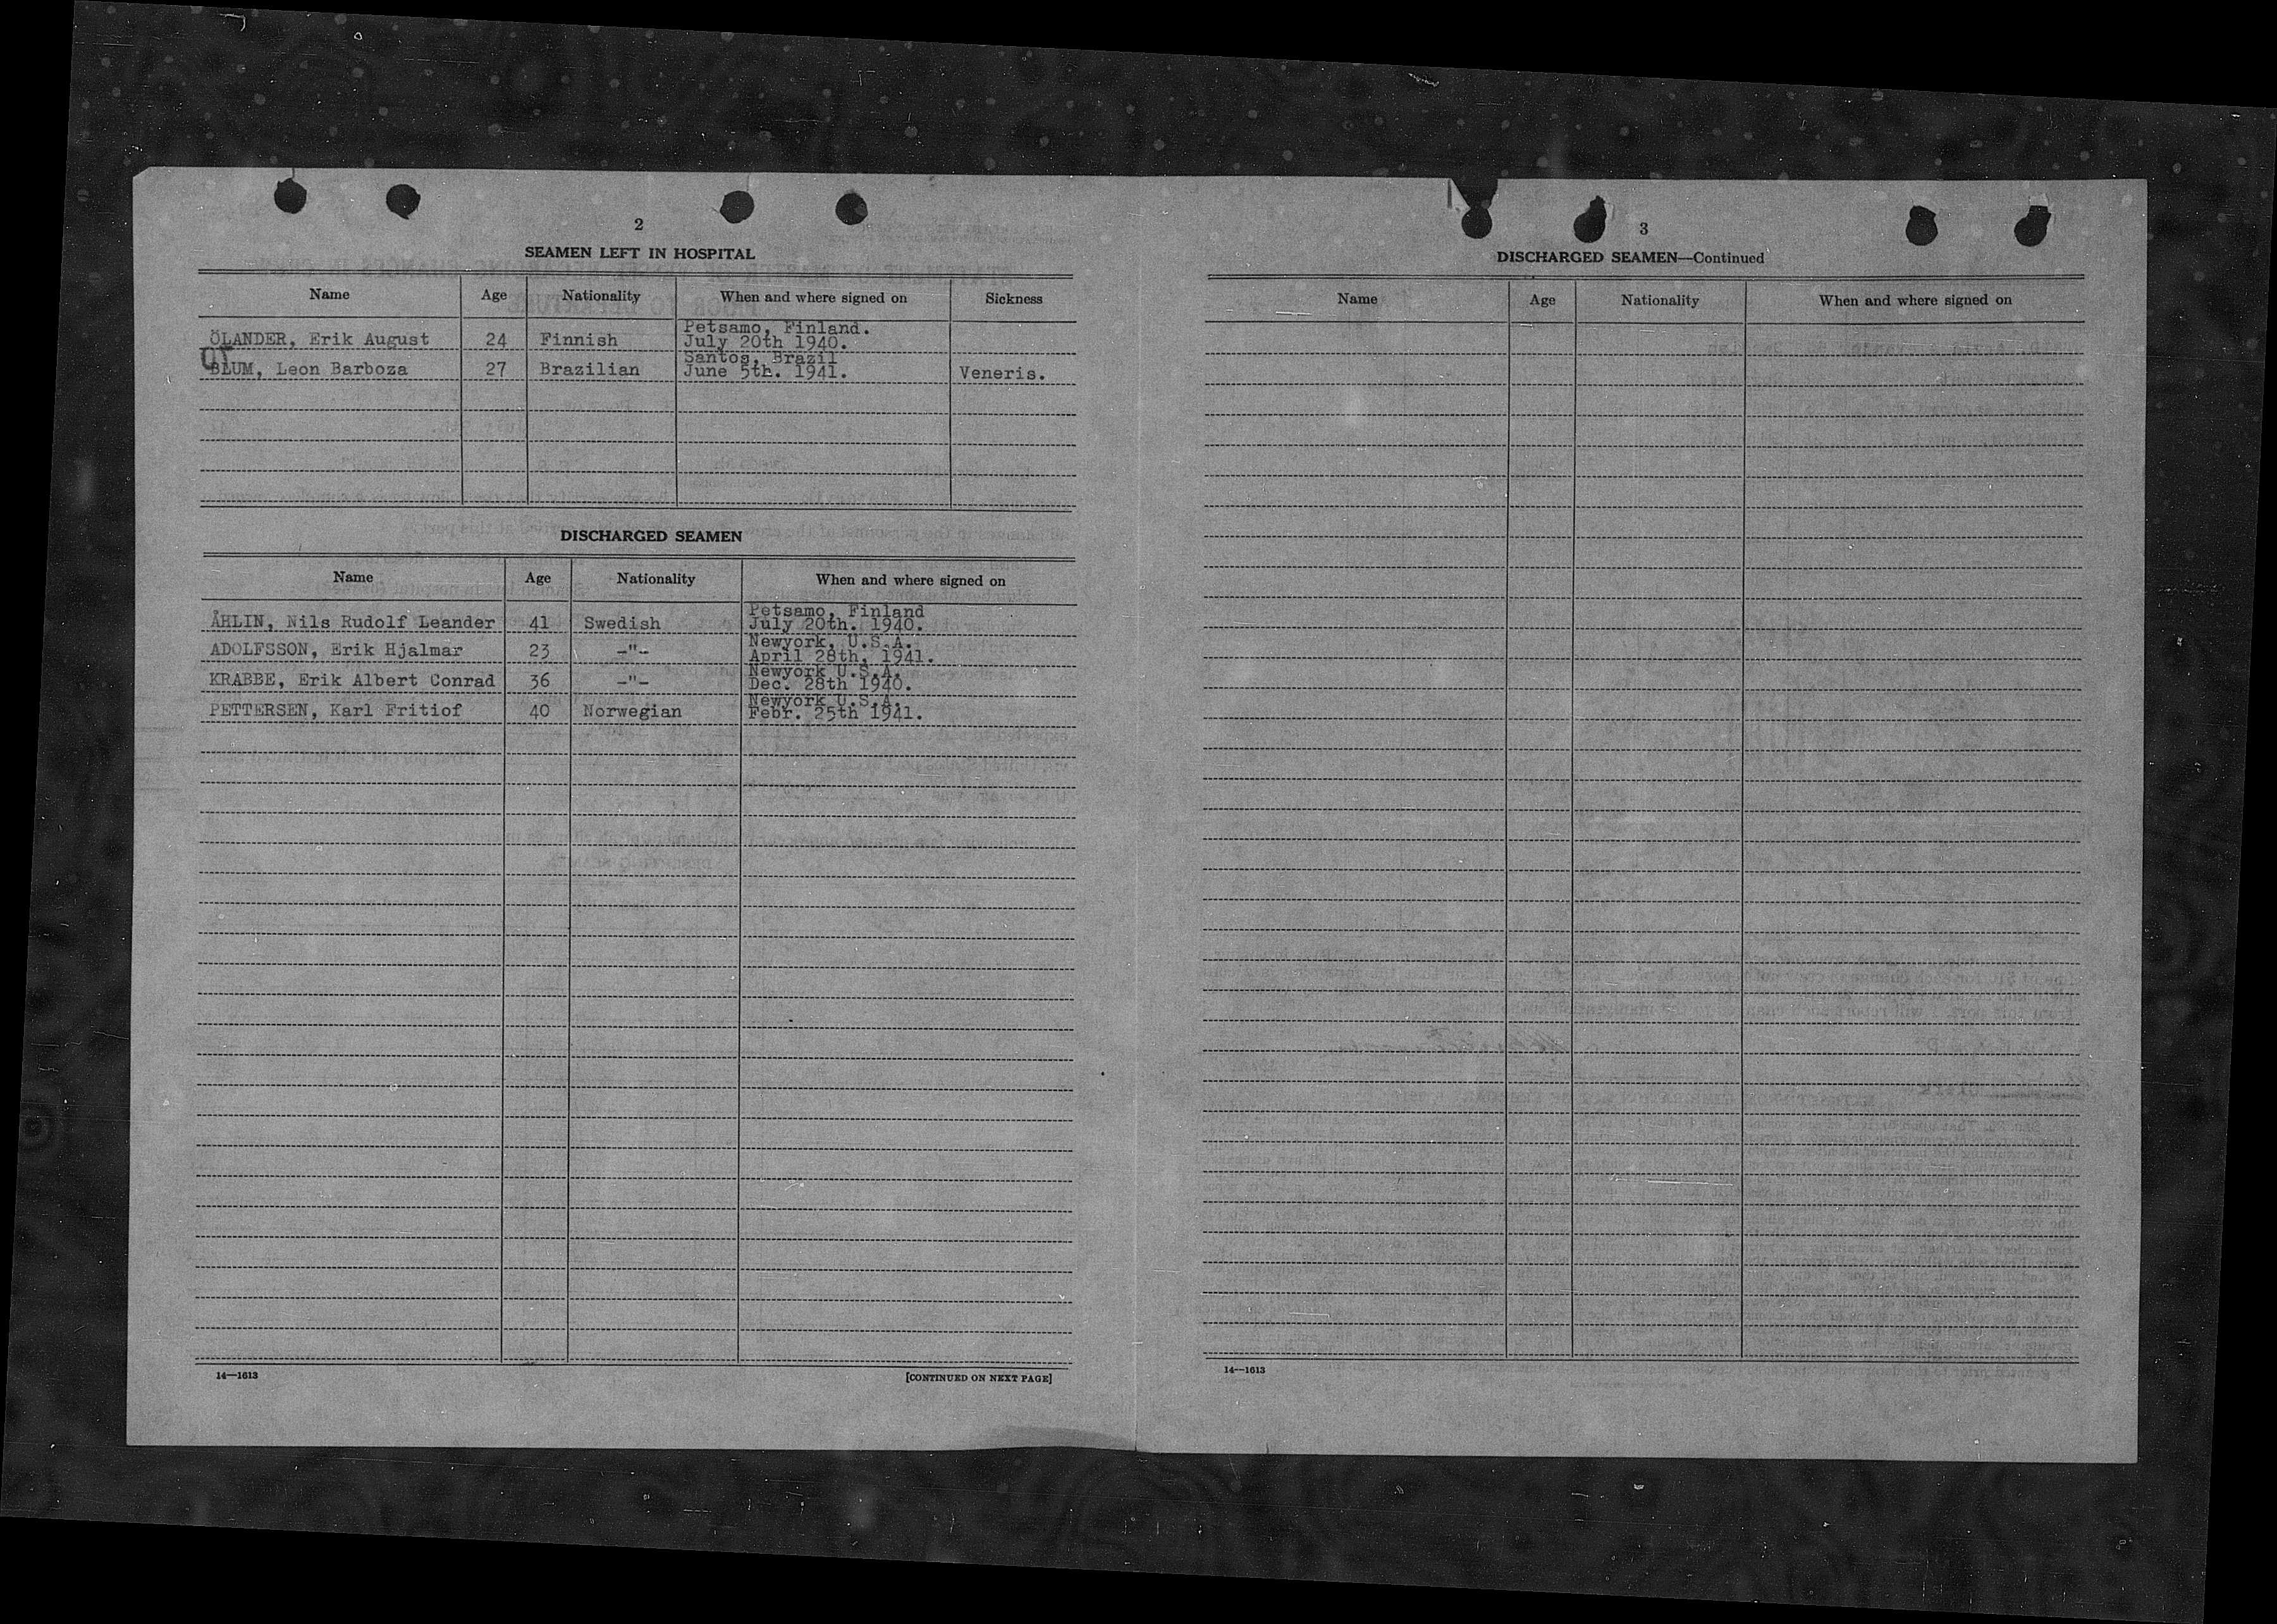 2
SEAMEN LEFT IN HOSPITAL
Name Age Nationality When and where signed on Sickness
ÖLANDER, Erik August 24 Finnish Petsamo, Finland. July 20th 1940.
BLUM, Leon Barboza 27 Brazilian Santos, Brazil June 5th. 1941. Veneris.
DISCHARGED SEAMEN
Name Age Nationality When and where signed on
ÅHLIN, Nils Rudolf Leander 41 Swedish Petsamo, Finland July 20th. 1940.
ADOLFSSON, Erik Hjalmar 23 -"- Newyork, U.S.A. April 28th, 1941.
KRABBE, Erik Albert Conrad 36 -"- Newyork U.S.A. Dec. 28th 1940.
PETTERSEN, Karl Fritiof 40 Norwegian Newyork U.S.A. Febr. 25th 1941.
14—1613 [CONTINUED ON NEXT PAGE]
3
DISCHARGED SEAMEN—Continued
Name Age Nationality When and where signed on
14—1613